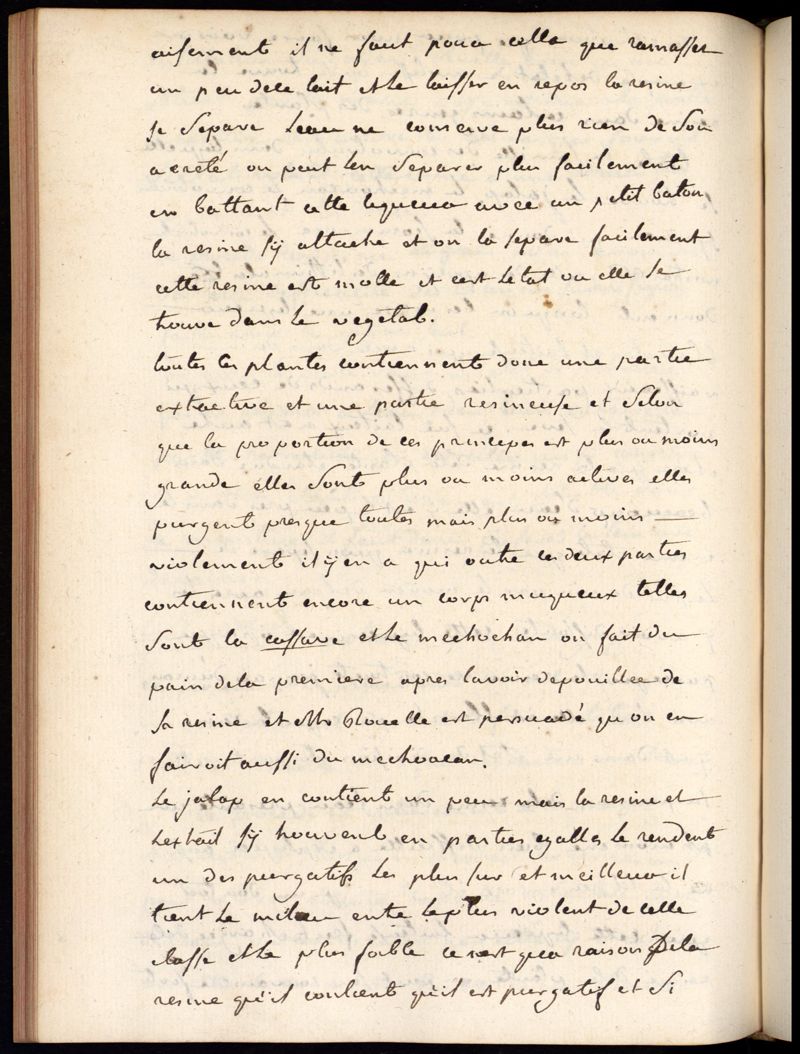 aisement il ne faut pour cella que ramasser
un peu dece lait et Le laisser en repos la resine
se separe Leau ne conserve plus rien de son
acreté on peut len separer plus facilement
en battant cette liqueur avec un petit baton
la resine sÿ attache et on la separe facilement
cette resine est molle et cest Letat ou elle se
trouve dans Le vegetal.
toutes les plantes contiennent donc une partie
extractive et une partie resineuse et selon
que la proportion de ces principes est plus ou moins
grande elles sont plus ou moins actives elles
purgent presque toutes mais plus ou moins —
violement il ÿ en a qui outre ces deux parties
contiennent encore un corps muqueux telles
sont la cassave et Le mechochan on fait du
pain dela premiere apres lavoir depouillee de
sa resine et Mr Rouelle est persuadé qu on en
fairoit aussi du mechoacan.
Le jalap en contient un peu mais la resine et
Lextrait sÿ trouvent en parties egalles le rendent
un des purgatifs Les plus sur et meilleur il
tient Le milieu entre Le plus violent de cette
classe et Le plus foible ce nest qua raison dela
resine qu'il contient qu'il est purgatif et si